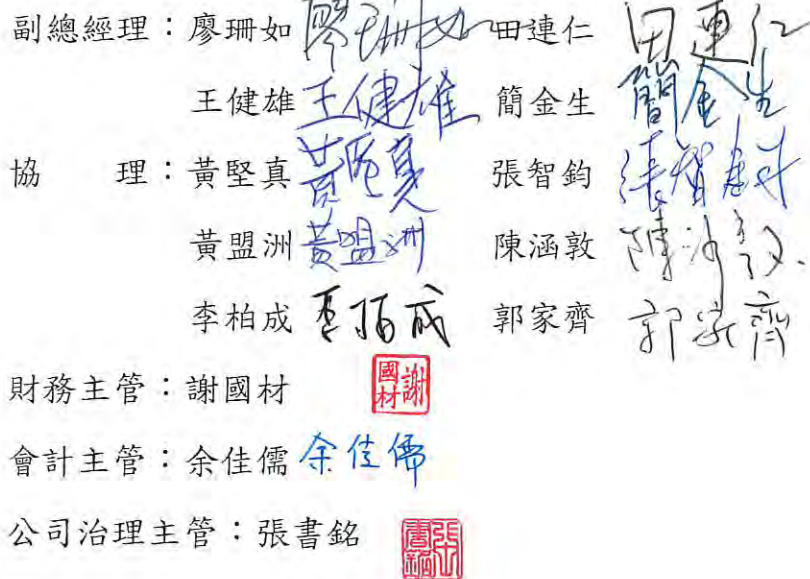 副總經理：廖珊如 廖珊如 田連仁 田連仁
王健雄 王健雄 簡金生 簡金生
協　　理：黃堅真 黃堅真 張智鈞 張智鈞
黃盟洲 黃盟洲 陳涵敦 陳涵敦
李柏成 李柏成 郭家齊 郭家齊
財務主管：謝國材 謝國材
會計主管：余佳儒 余佳儒
公司治理主管：張書銘 張書銘